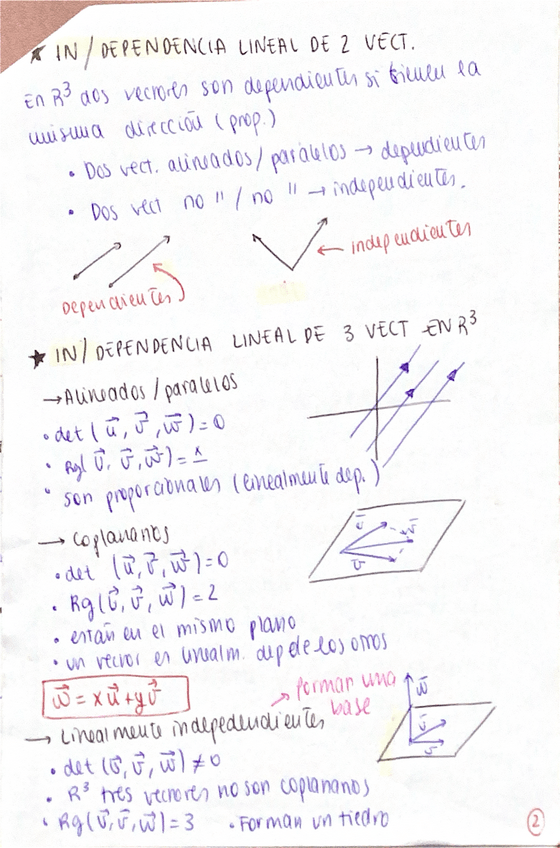 ★ IN/DEPENDENCIA LINEAL DE 2 VECT.
En R³ dos vectores son dependientes si tienen la
misma dirección (prop.)
• Dos vect. alineados/paralelos → dependientes
• Dos vect no " / no " → independientes.
← independientes
Dependientes
★ IN/DEPENDENCIA LINEAL DE 3 VECT EN R³
→ Alineados/paralelos
• det (u⃗, v⃗, w⃗) = 0
• Rg(u⃗, v⃗, w⃗) = 1
• son proporcionales (linealmente dep.)
→ Coplanarios
u⃗ w⃗
v⃗
• det (u⃗, v⃗, w⃗) = 0
• Rg(u⃗, v⃗, w⃗) = 2
• están en el mismo plano
• un vector es linealm. dep de los otros
w⃗ = xu⃗ + yv⃗
↗ forman una
base
w⃗
→ Linealmente indepedendientes
u⃗
v⃗
• det (u⃗, v⃗, w⃗) ≠ 0
• R³ tres vectores no son coplanarios
• Rg(u⃗, v⃗, w⃗) = 3 • Forman un tiedro
2